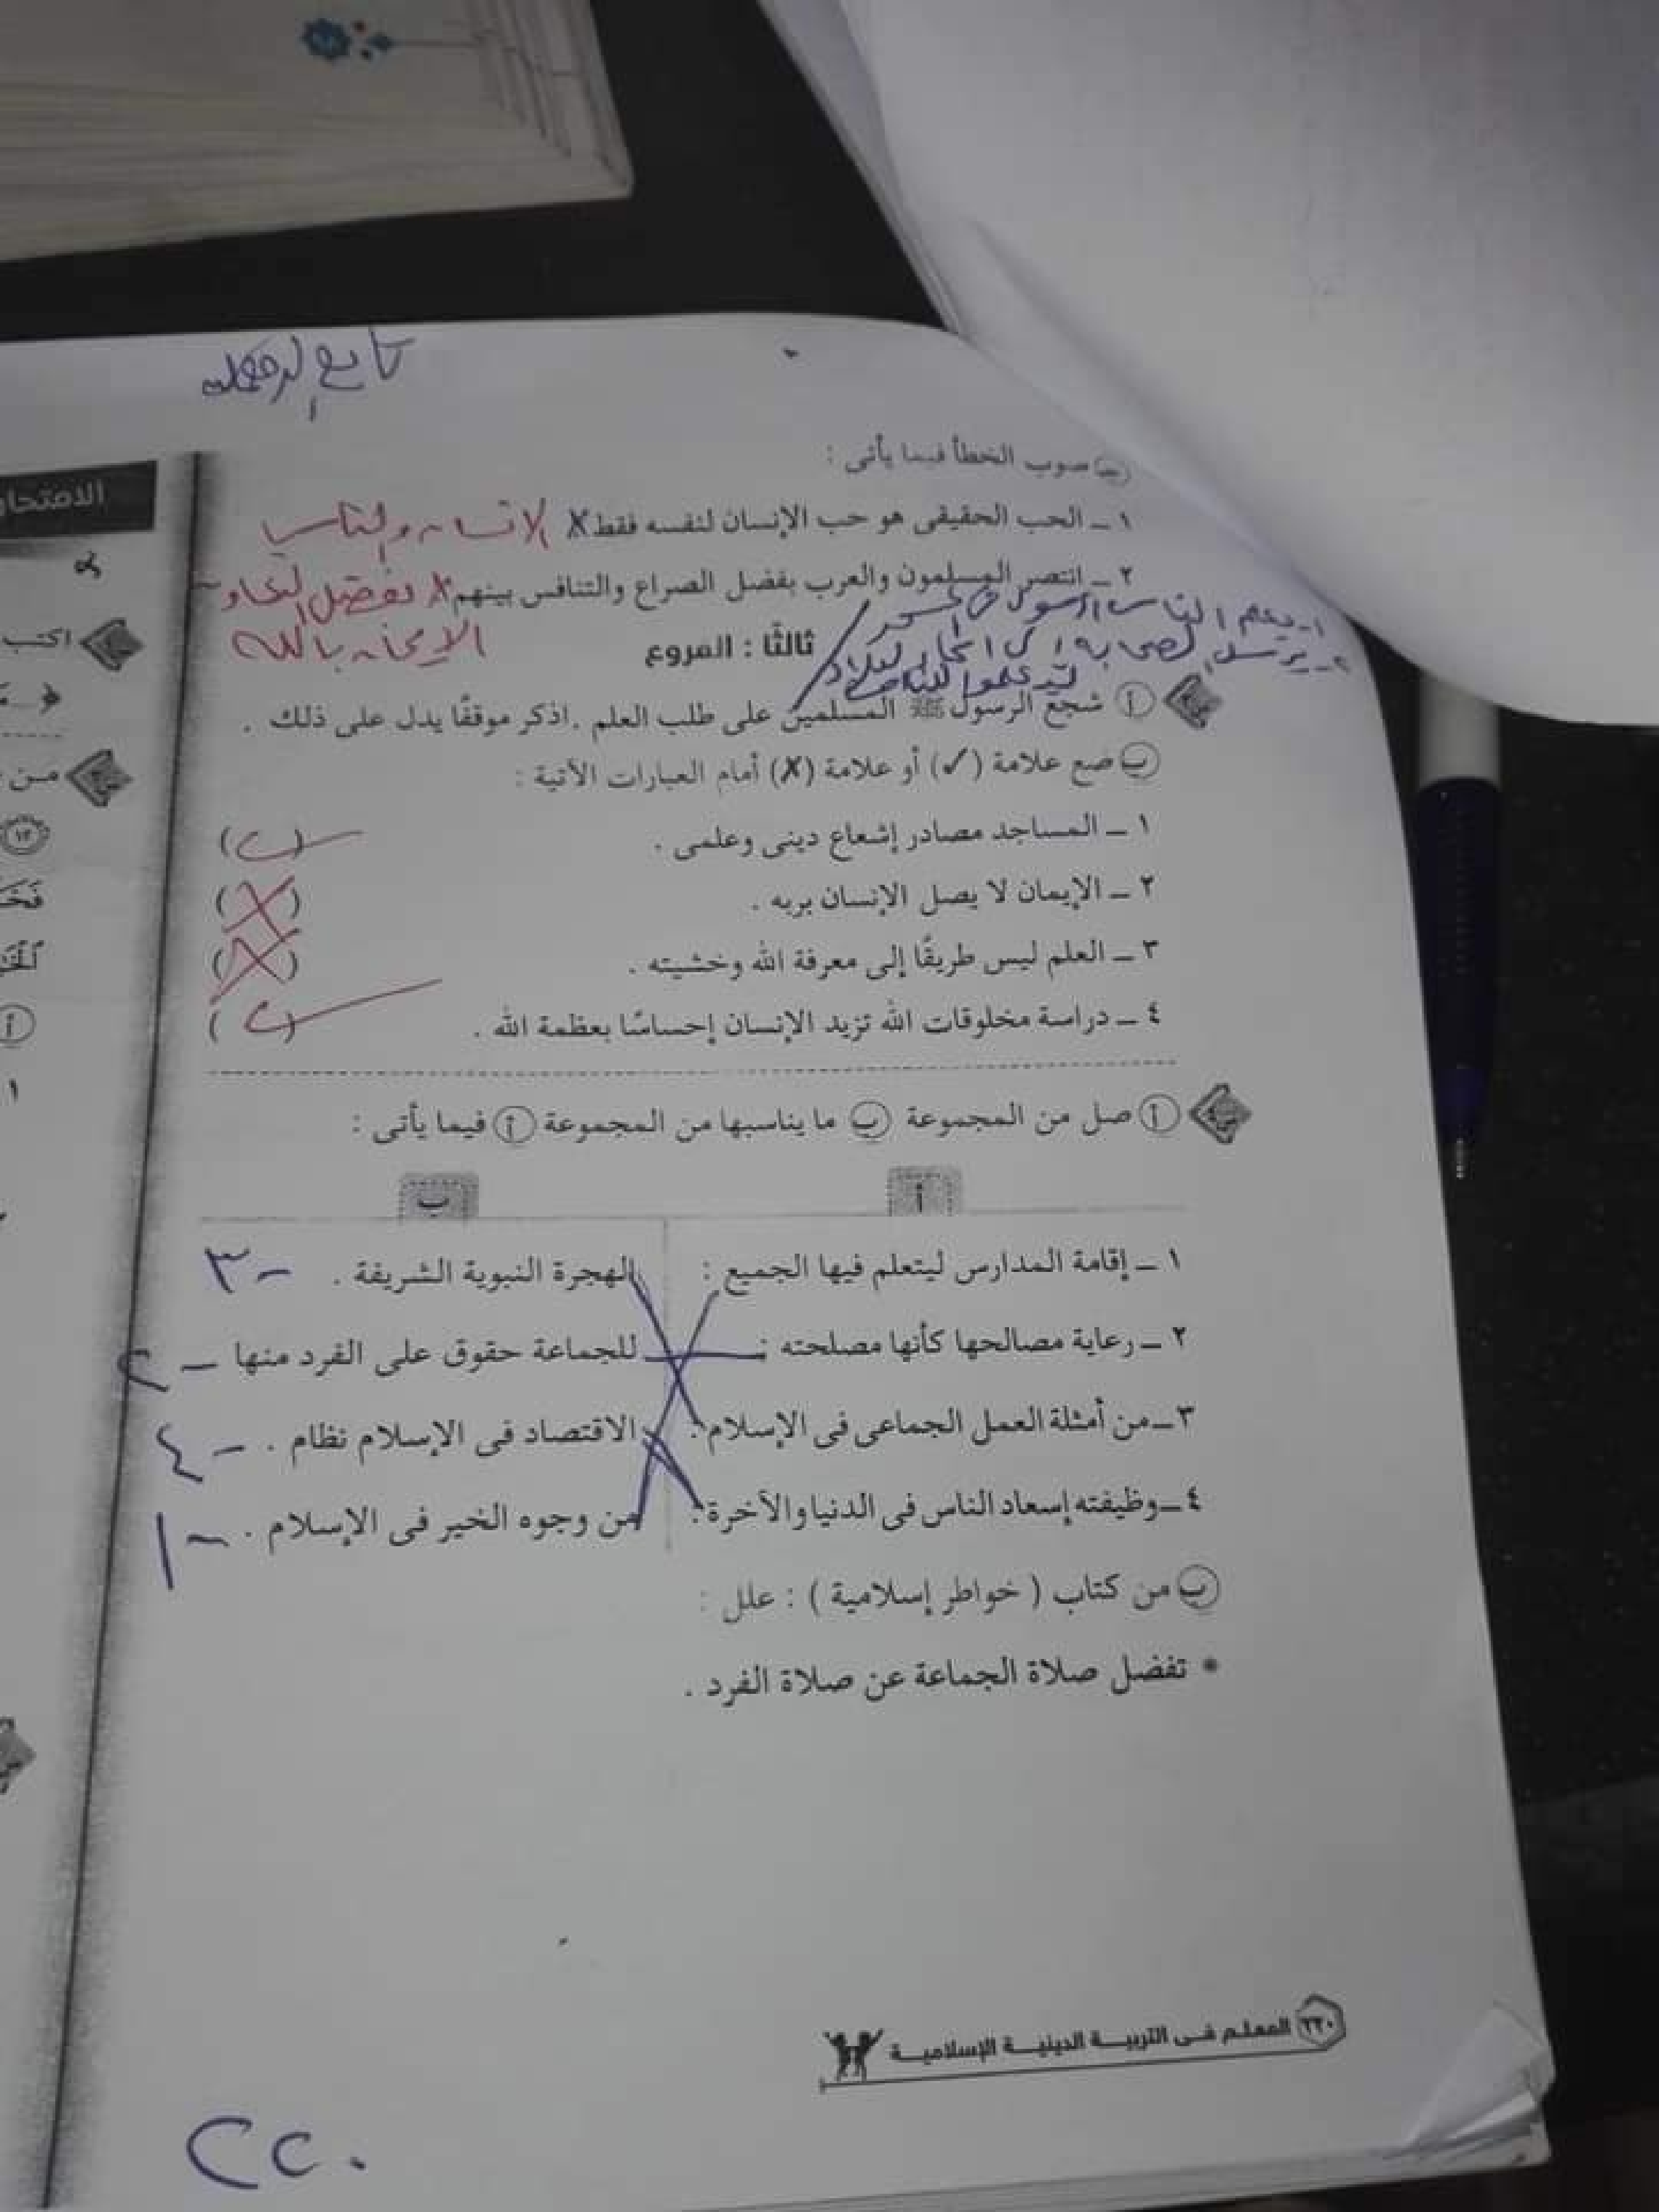 تابع إجابة
جـ صوب الخطأ فيما يأتى :
١ ـ الحب الحقيقى هو حب الإنسان لنفسه فقط X الإنسان والناس
٢ ـ انتصر المسلمون والعرب بفضل الصراع والتنافس بينهم X بفضل التعاون
الإيمان بالله
١- يعلم الناس الرسول فى
ثالثًا : الفروع
أ شجع الرسول ﷺ المسلمين على طلب العلم . اذكر موقفًا يدل على ذلك .
ب ضع علامة (✓) أو علامة (X) أمام العبارات الآتية :
١ ـ المساجد مصادر إشعاع دينى وعلمى . (✓)
٢ ـ الإيمان لا يصل الإنسان بربه . (X)
٣ ـ العلم ليس طريقًا إلى معرفة الله وخشيته . (X)
٤ ـ دراسة مخلوقات الله تزيد الإنسان إحساسًا بعظمة الله . (✓)
أ صل من المجموعة ب ما يناسبها من المجموعة أ فيما يأتى :
أ ب
١ ـ إقامة المدارس ليتعلم فيها الجميع : الهجرة النبوية الشريفة . - ٣
٢ ـ رعاية مصالحها كأنها مصلحته : للجماعة حقوق على الفرد منها - ٢
٣ ـ من أمثلة العمل الجماعى فى الإسلام : الاقتصاد فى الإسلام نظام . - ٤
٤ ـ وظيفته إسعاد الناس فى الدنيا والآخرة : من وجوه الخير فى الإسلام . - ١
ب من كتاب ( خواطر إسلامية ) : علل :
* تفضل صلاة الجماعة عن صلاة الفرد .
٢٢٠ المعلم فى التربية الدينية الإسلامية
٢٢٠
اكتب
من
١٣
أ
١